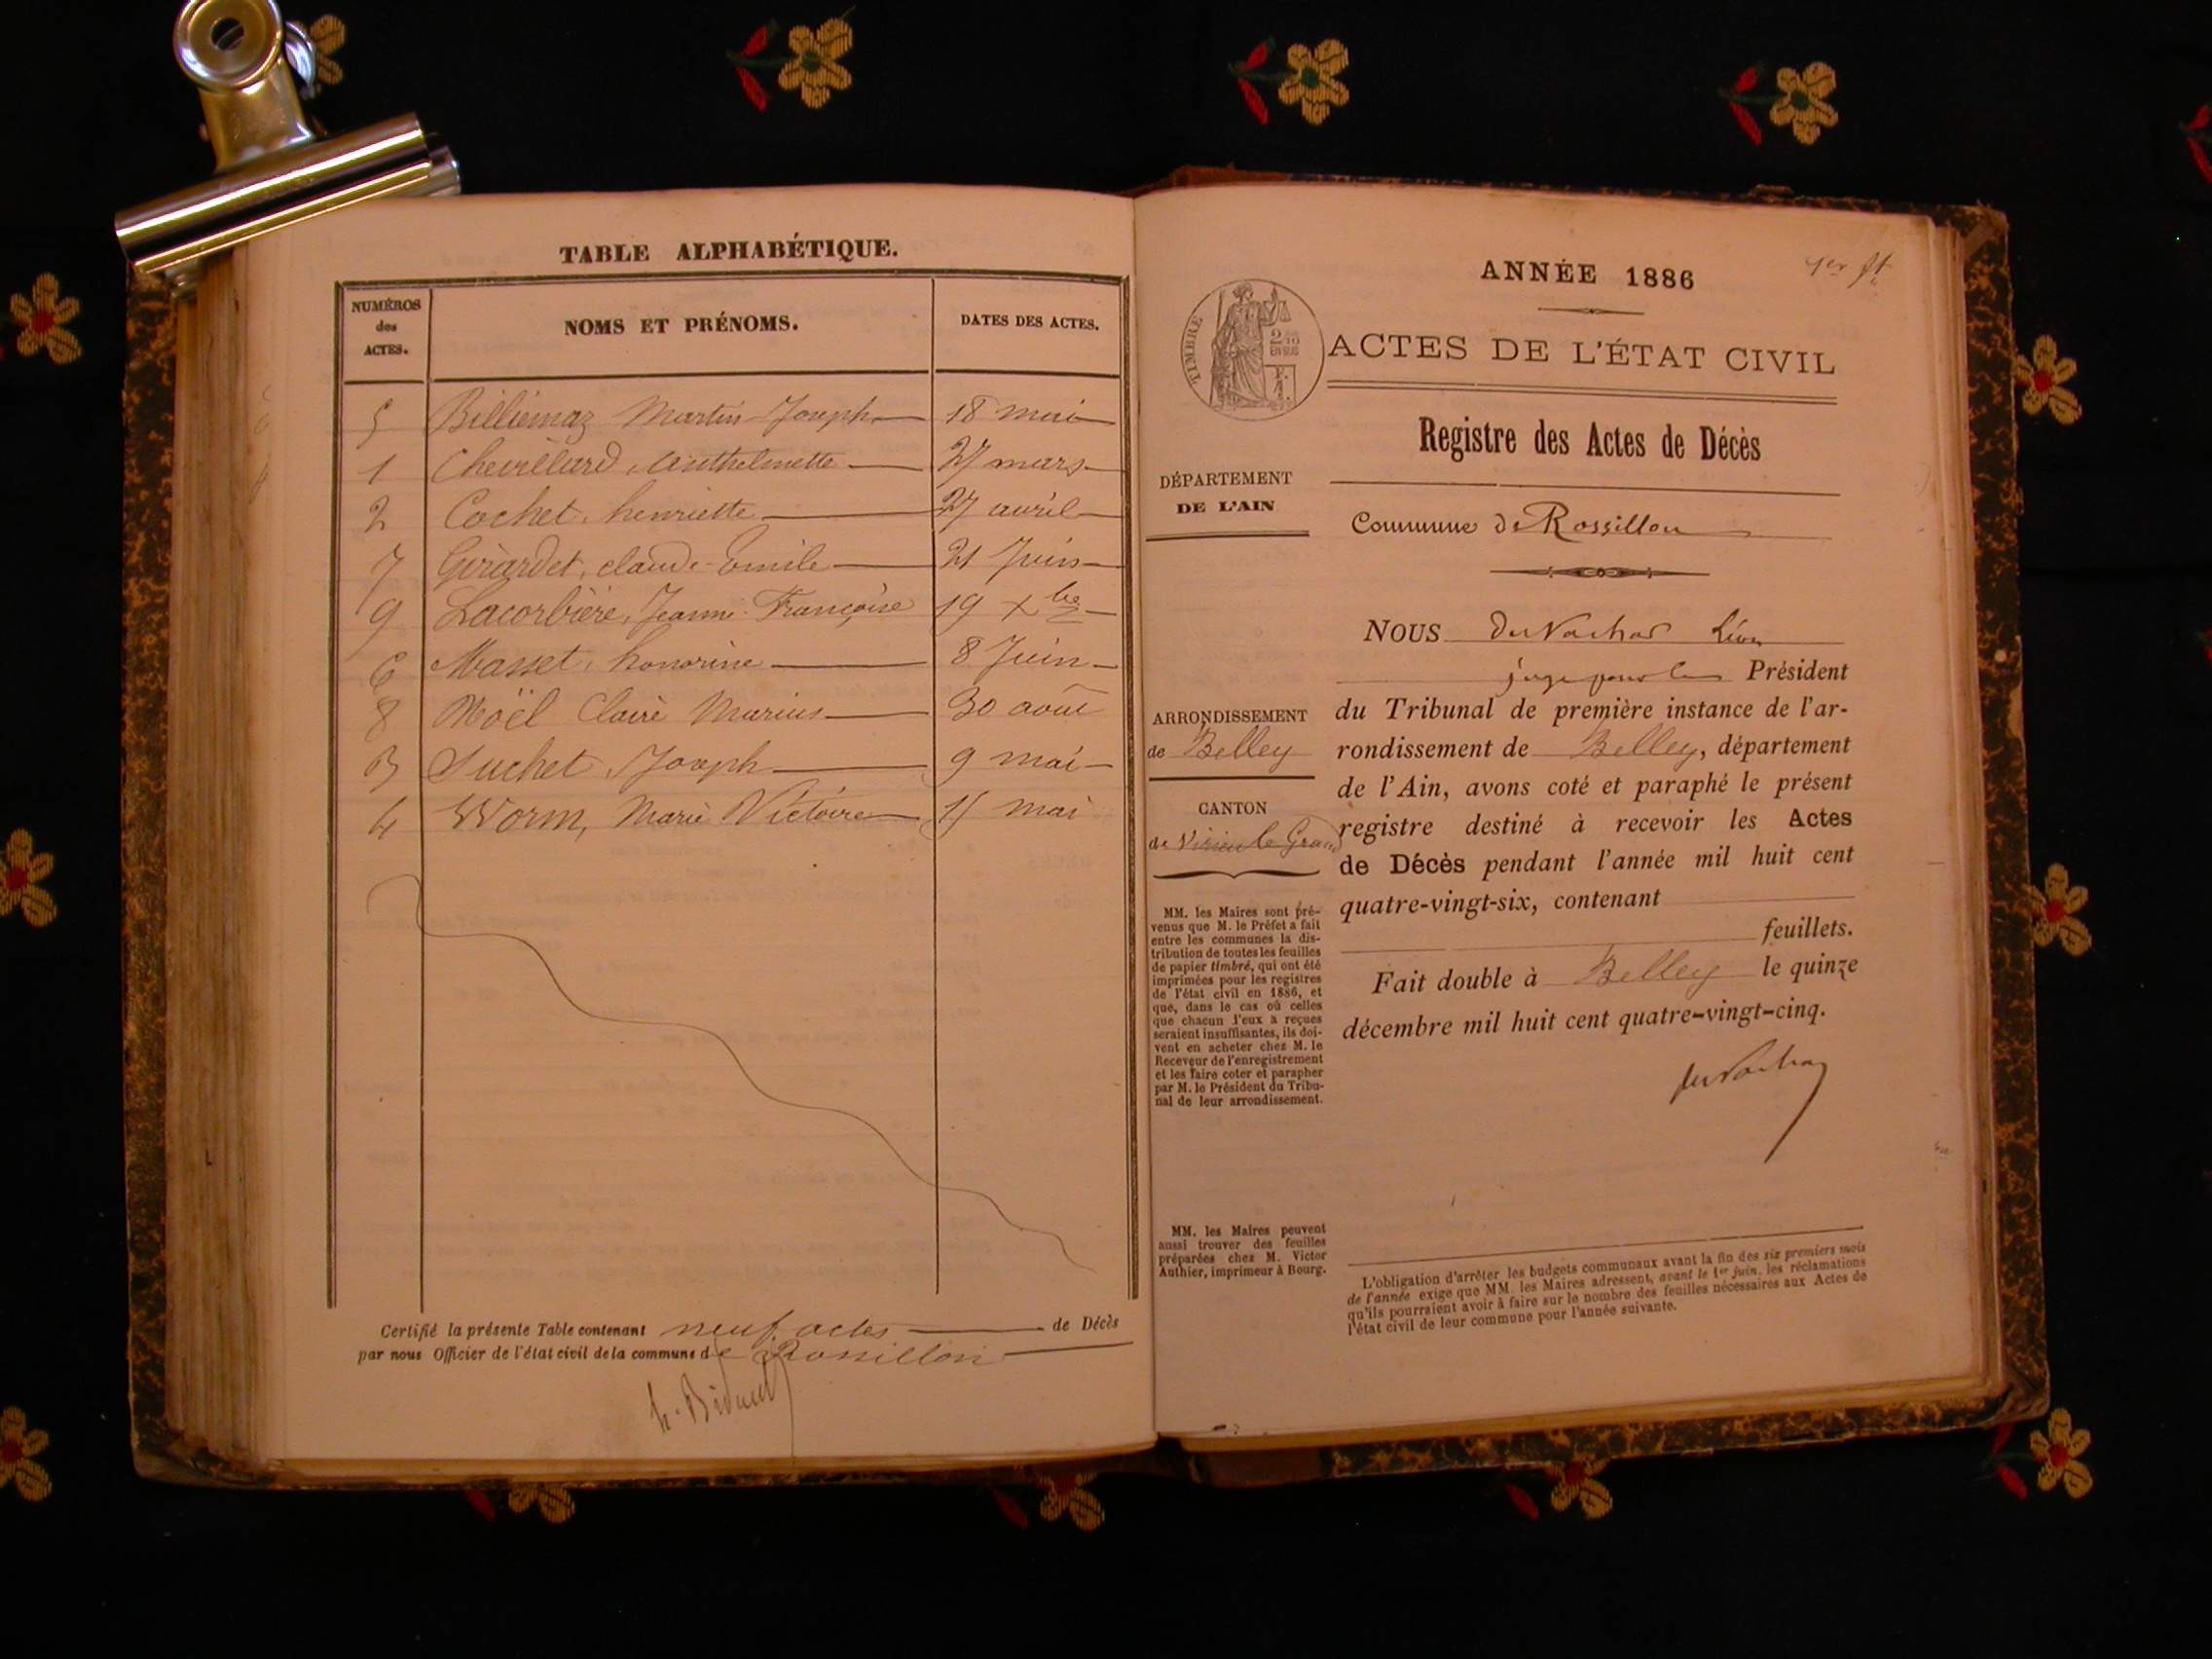 TABLE ALPHABÉTIQUE.
NUMÉROS
des
ACTES.
NOMS ET PRÉNOMS.
DATES DES ACTES.
5 Billiemaz Martin Joseph 18 mai
1 Chevillard, Anthelmette 27 mars
2 Cochet, henriette 27 avril
7 Girardet, claude Emile 21 Juin
9 Lacorbière, Jeanne Françoise 19 Xbre
6 Masset, honorine 8 Juin
8 Noël Claire Marius 30 août
3 Suchet, Joseph 9 mai
4 Worm, Marie Victoire 15 mai
Certifié la présente Table contenant neuf actes de Décès
par nous Officier de l'état civil de la commune de Rossillon
ANNÉE 1886
TIMBRE
ACTES DE L'ÉTAT CIVIL
Registre des Actes de Décès
DÉPARTEMENT
DE L'AIN
Commune de Rossillon
ARRONDISSEMENT
de Belley
CANTON
de Virieu le Grand
MM. les Maires sont pré-
venus que M. le Préfet a fait
entre les communes la dis-
tribution de toutes les feuilles
de papier timbré, qui ont été
imprimées pour les registres
de l'état civil en 1886, et
que, dans le cas où celles
que chacun d'eux a reçues
seraient insuffisantes, ils doi-
vent en acheter chez M. le
Receveur de l'enregistrement
et les faire coter et parapher
par M. le Président du Tribu-
nal de leur arrondissement.
MM. les Maires peuvent
aussi trouver des feuilles
préparées chez M. Victor
Authier, imprimeur à Bourg.
NOUS Léon
juge pour le Président
du Tribunal de première instance de l'ar-
rondissement de Belley, département
de l'Ain, avons coté et paraphé le présent
registre destiné à recevoir les Actes
de Décès pendant l'année mil huit cent
quatre-vingt-six, contenant
feuillets.
Fait double à Belley le quinze
décembre mil huit cent quatre-vingt-cinq.
L'obligation d'arrêter les budgets communaux avant la fin des six premiers mois
de l'année exige que MM. les Maires adressent, avant le 1er juin, les réclamations
qu'ils pourraient avoir à faire sur le nombre des feuilles nécessaires aux Actes de
l'état civil de leur commune pour l'année suivante.